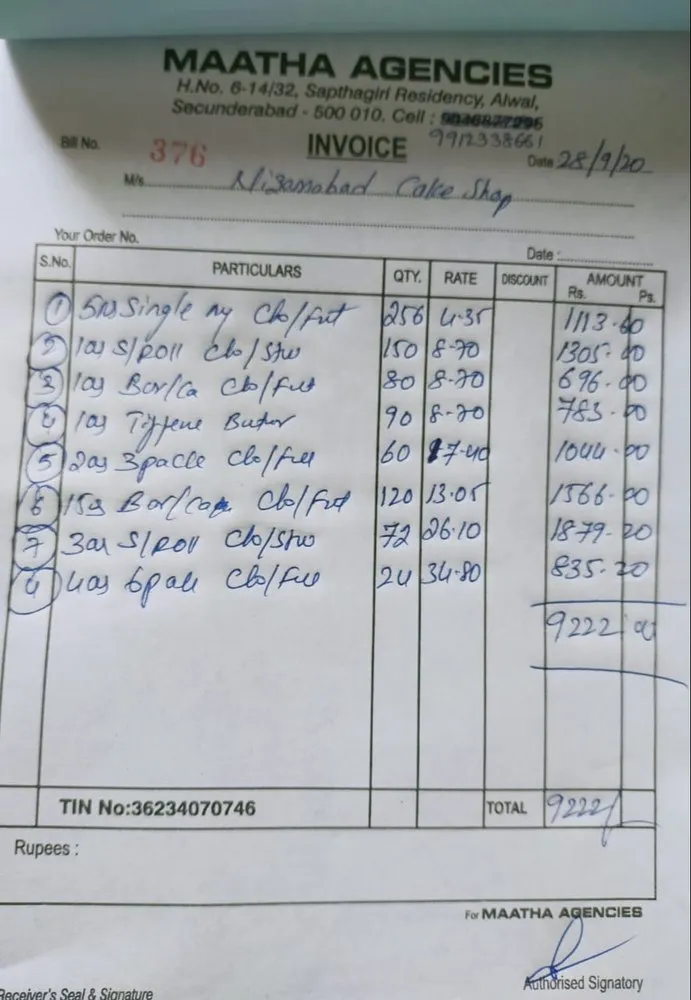 MAATHA AGENCIES
H.No. 6-14/32, Sapthagiri Residency, Alwal,
Secunderabad - 500 010. Cell :
9912338661
Bill No. 376 INVOICE Date 28/9/20
M/s. Nizamabad Cake Shop
Your Order No. Date :
S.No. PARTICULARS QTY. RATE DISCOUNT AMOUNT
Rs. Ps.
1 Single Cho/Frut 256 4.35 1113.60
2 10rs S/Roll Cho/Stw 150 8-70 1305.00
3 10rs Bar/Ca Cho/Frut 80 8-70 696.00
4 10rs Butter 90 8-70 783.00
5 20rs 3pack Cho/Fru 60 17-40 1044.00
6 15rs Bar/Cake Cho/Frut 120 13.05 1566.00
7 30rs S/Roll Cho/Stw 72 26.10 1879.20
40rs 6pack Cho/Fru 24 34-80 835.20
9222 00
TIN No:36234070746 TOTAL 9222/
Rupees :
For MAATHA AGENCIES
Authorised Signatory
Receiver's Seal & Signature